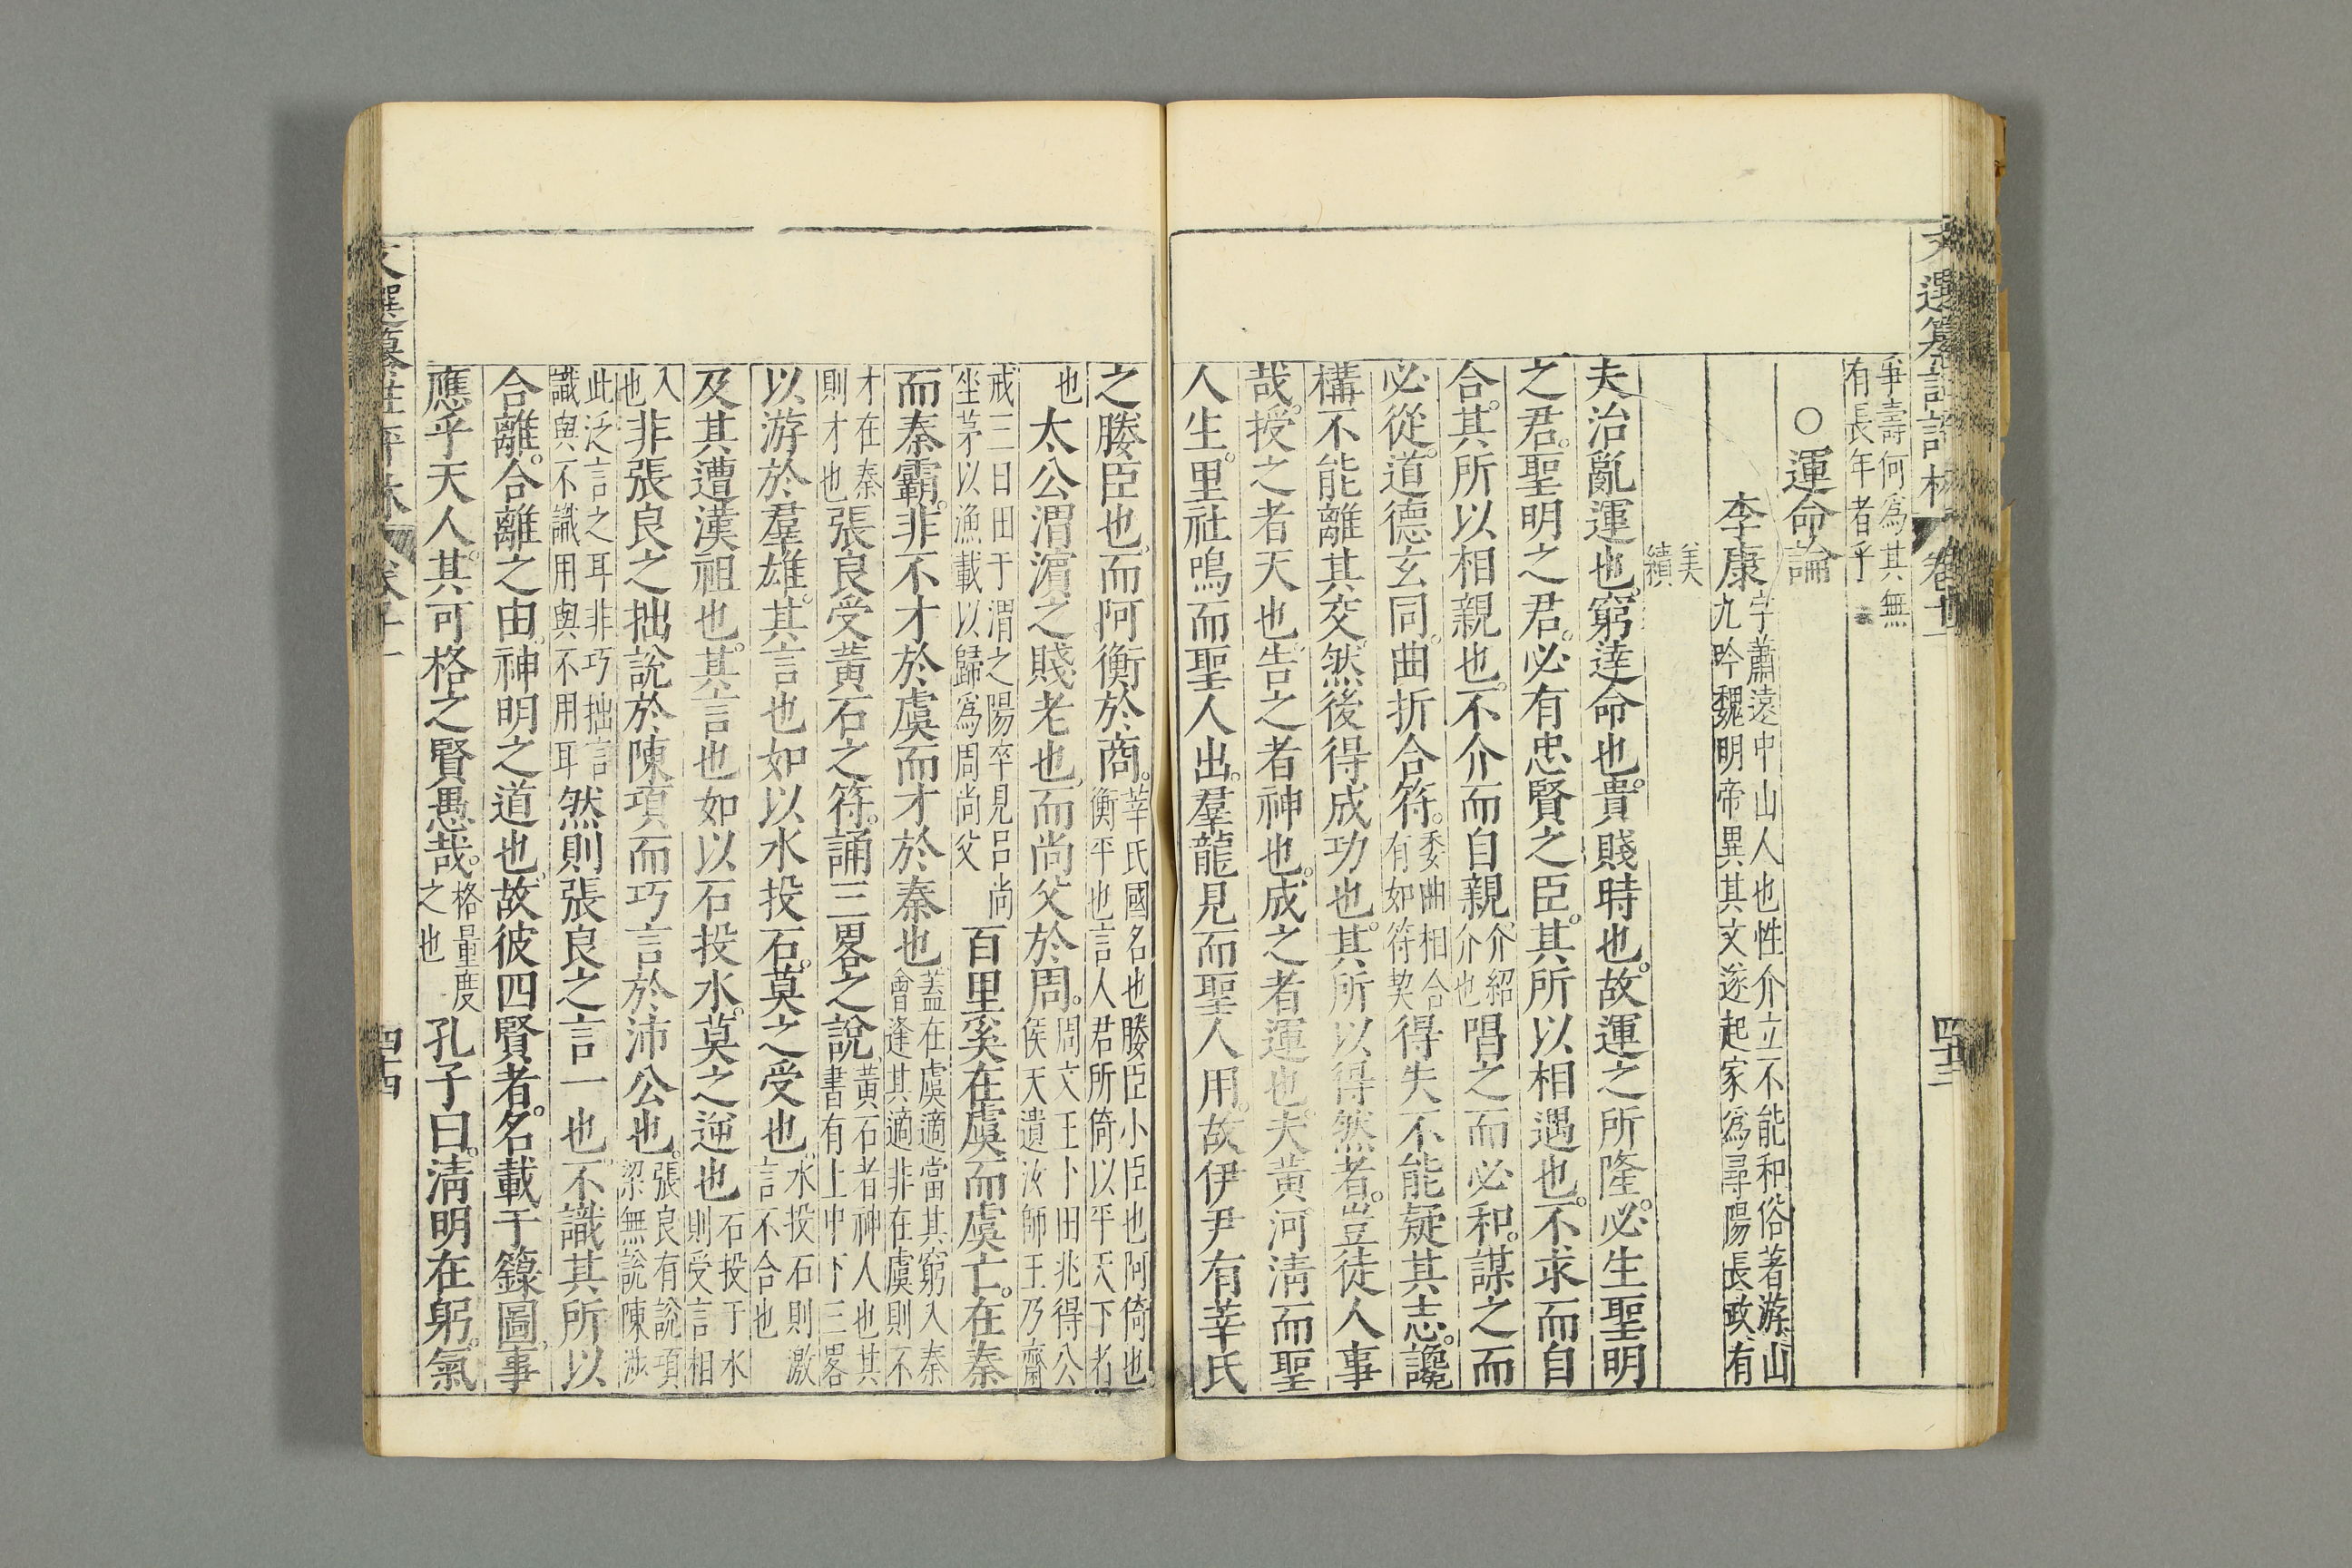 爭壽何爲其無
有長年者乎
○運命論
李康
字蕭遠中山人也性介立不能和俗著游山
九吟魏明帝異其文遂起家爲尋陽長政有
美
績
夫治亂運也。窮達命也。貴賤時也。故運之所隆。必生聖明
之君。聖明之君。必有忠賢之臣。其所以相遇也。不求而自
合。其所以相親也。不介而自親、介紹介也唱之而必和。謀之而
必從。道德玄同。曲折合符。委曲相合有如符契得失不能疑其志。讒
構不能離其交。然後得成功也。其所以得然者。豈徒人事
哉。授之者天也。告之者神也。成之者運也。夫黃河清而聖
人生。里社鳴而聖人出。羣龍見而聖人用。故伊尹有莘氏
之媵臣也。而阿衡於商。莘氏國名也媵臣小臣也阿倚也衡平也言人君所倚以平天下者
也太公渭濱之賤老也。而尚父於周。周文王卜田兆得公侯天遺汝師王乃齋
戒三日田于渭之陽卒見呂尚坐茅以漁載以歸爲周尚父百里奚在虞而虞亡。在秦
而秦霸。非不才於虞而才於秦也蓋在虞適當其窮入秦會逢其適非在虞則不
才在秦則才也張良受黃石之符。誦三畧之說、黃石者神人也其書有上中下三畧
以游於羣雄。其言也如以水投石。莫之受也、水投石則激言不合也
及其遭漢祖也。其言也如以石投水。莫之逆也石投于水則受言相
入也非張良之拙說於陳項而巧言於沛公也。張良有說項梁無說陳涉
此泛言之耳非巧拙言識與不識用與不用耳然則張良之言一也。不識其所以
合離。合離之由。神明之道也。故彼四賢者。名載于籙圖。事
應乎天人。其可格之賢愚哉。格量度之也孔子曰。清明在躬。氣
文選纂註評林
卷十一
四十三
四十四